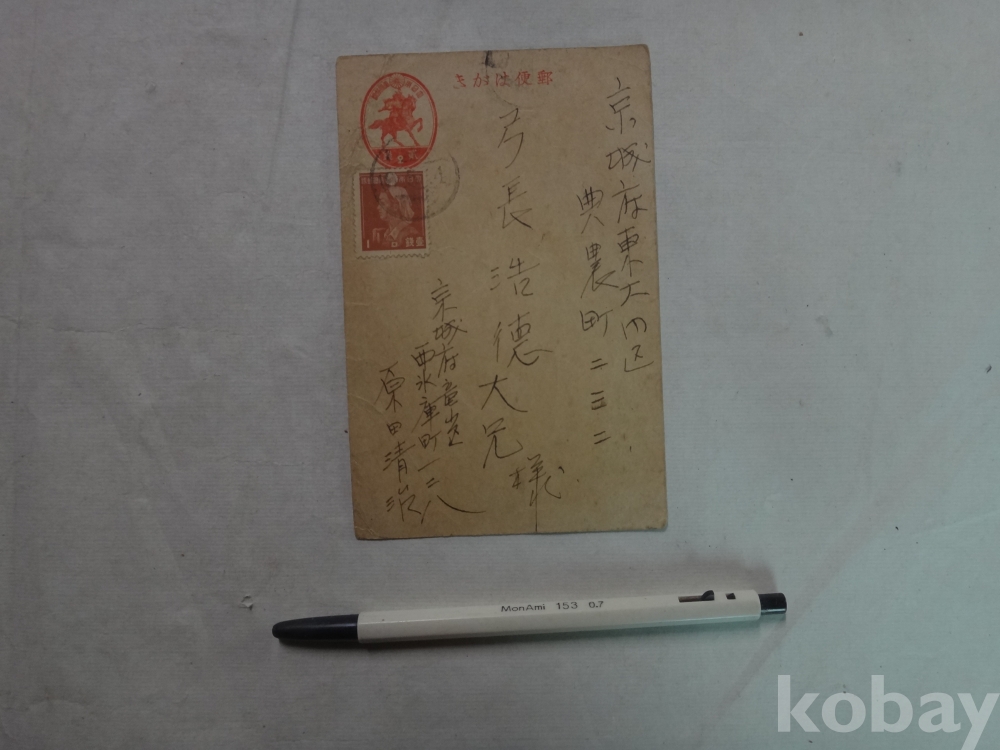 郵便はかき
京城府東大門区
典農町二三二
弓長浩德大兄
様
京城府龍山区
西氷庫町一二八
栗田清
1
壹錢
MonAmi 153 0.7
kobay